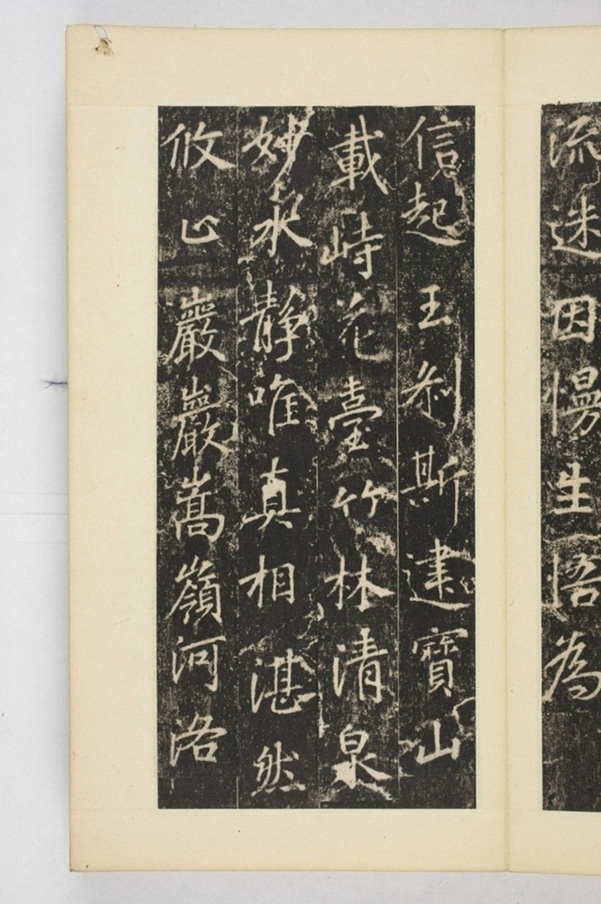 流迷因慢生悟為
信起玉刹斯建寶山
載峙花臺竹林清泉
妙水靜唯真相湛然
攸止巖巖嵩嶺河洛